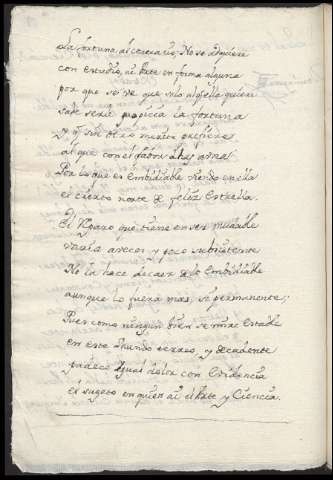 La fortuna al contrario, No se adquiere
con estudio, ni Arte en forma alguna
por que sea de que solo aquello quiere
sabe serle propicia la fortuna
y que sin otro merito prefiere
al que
Por lo que es Embidiable siendo en ella
el cierto norte de felice Estrella.
El Reparo que tiene en ser mudable
varia a veces y poco subsistente
No la hace decaer de lo Embidiable
aunque lo fuera mas, si permanente;
Pues como ningun bien se mira estable
en este Mundo erraneo, y decadente
padece igual dolor con Evidencia
el sugeto en quien ai el Arte y Ciencia.